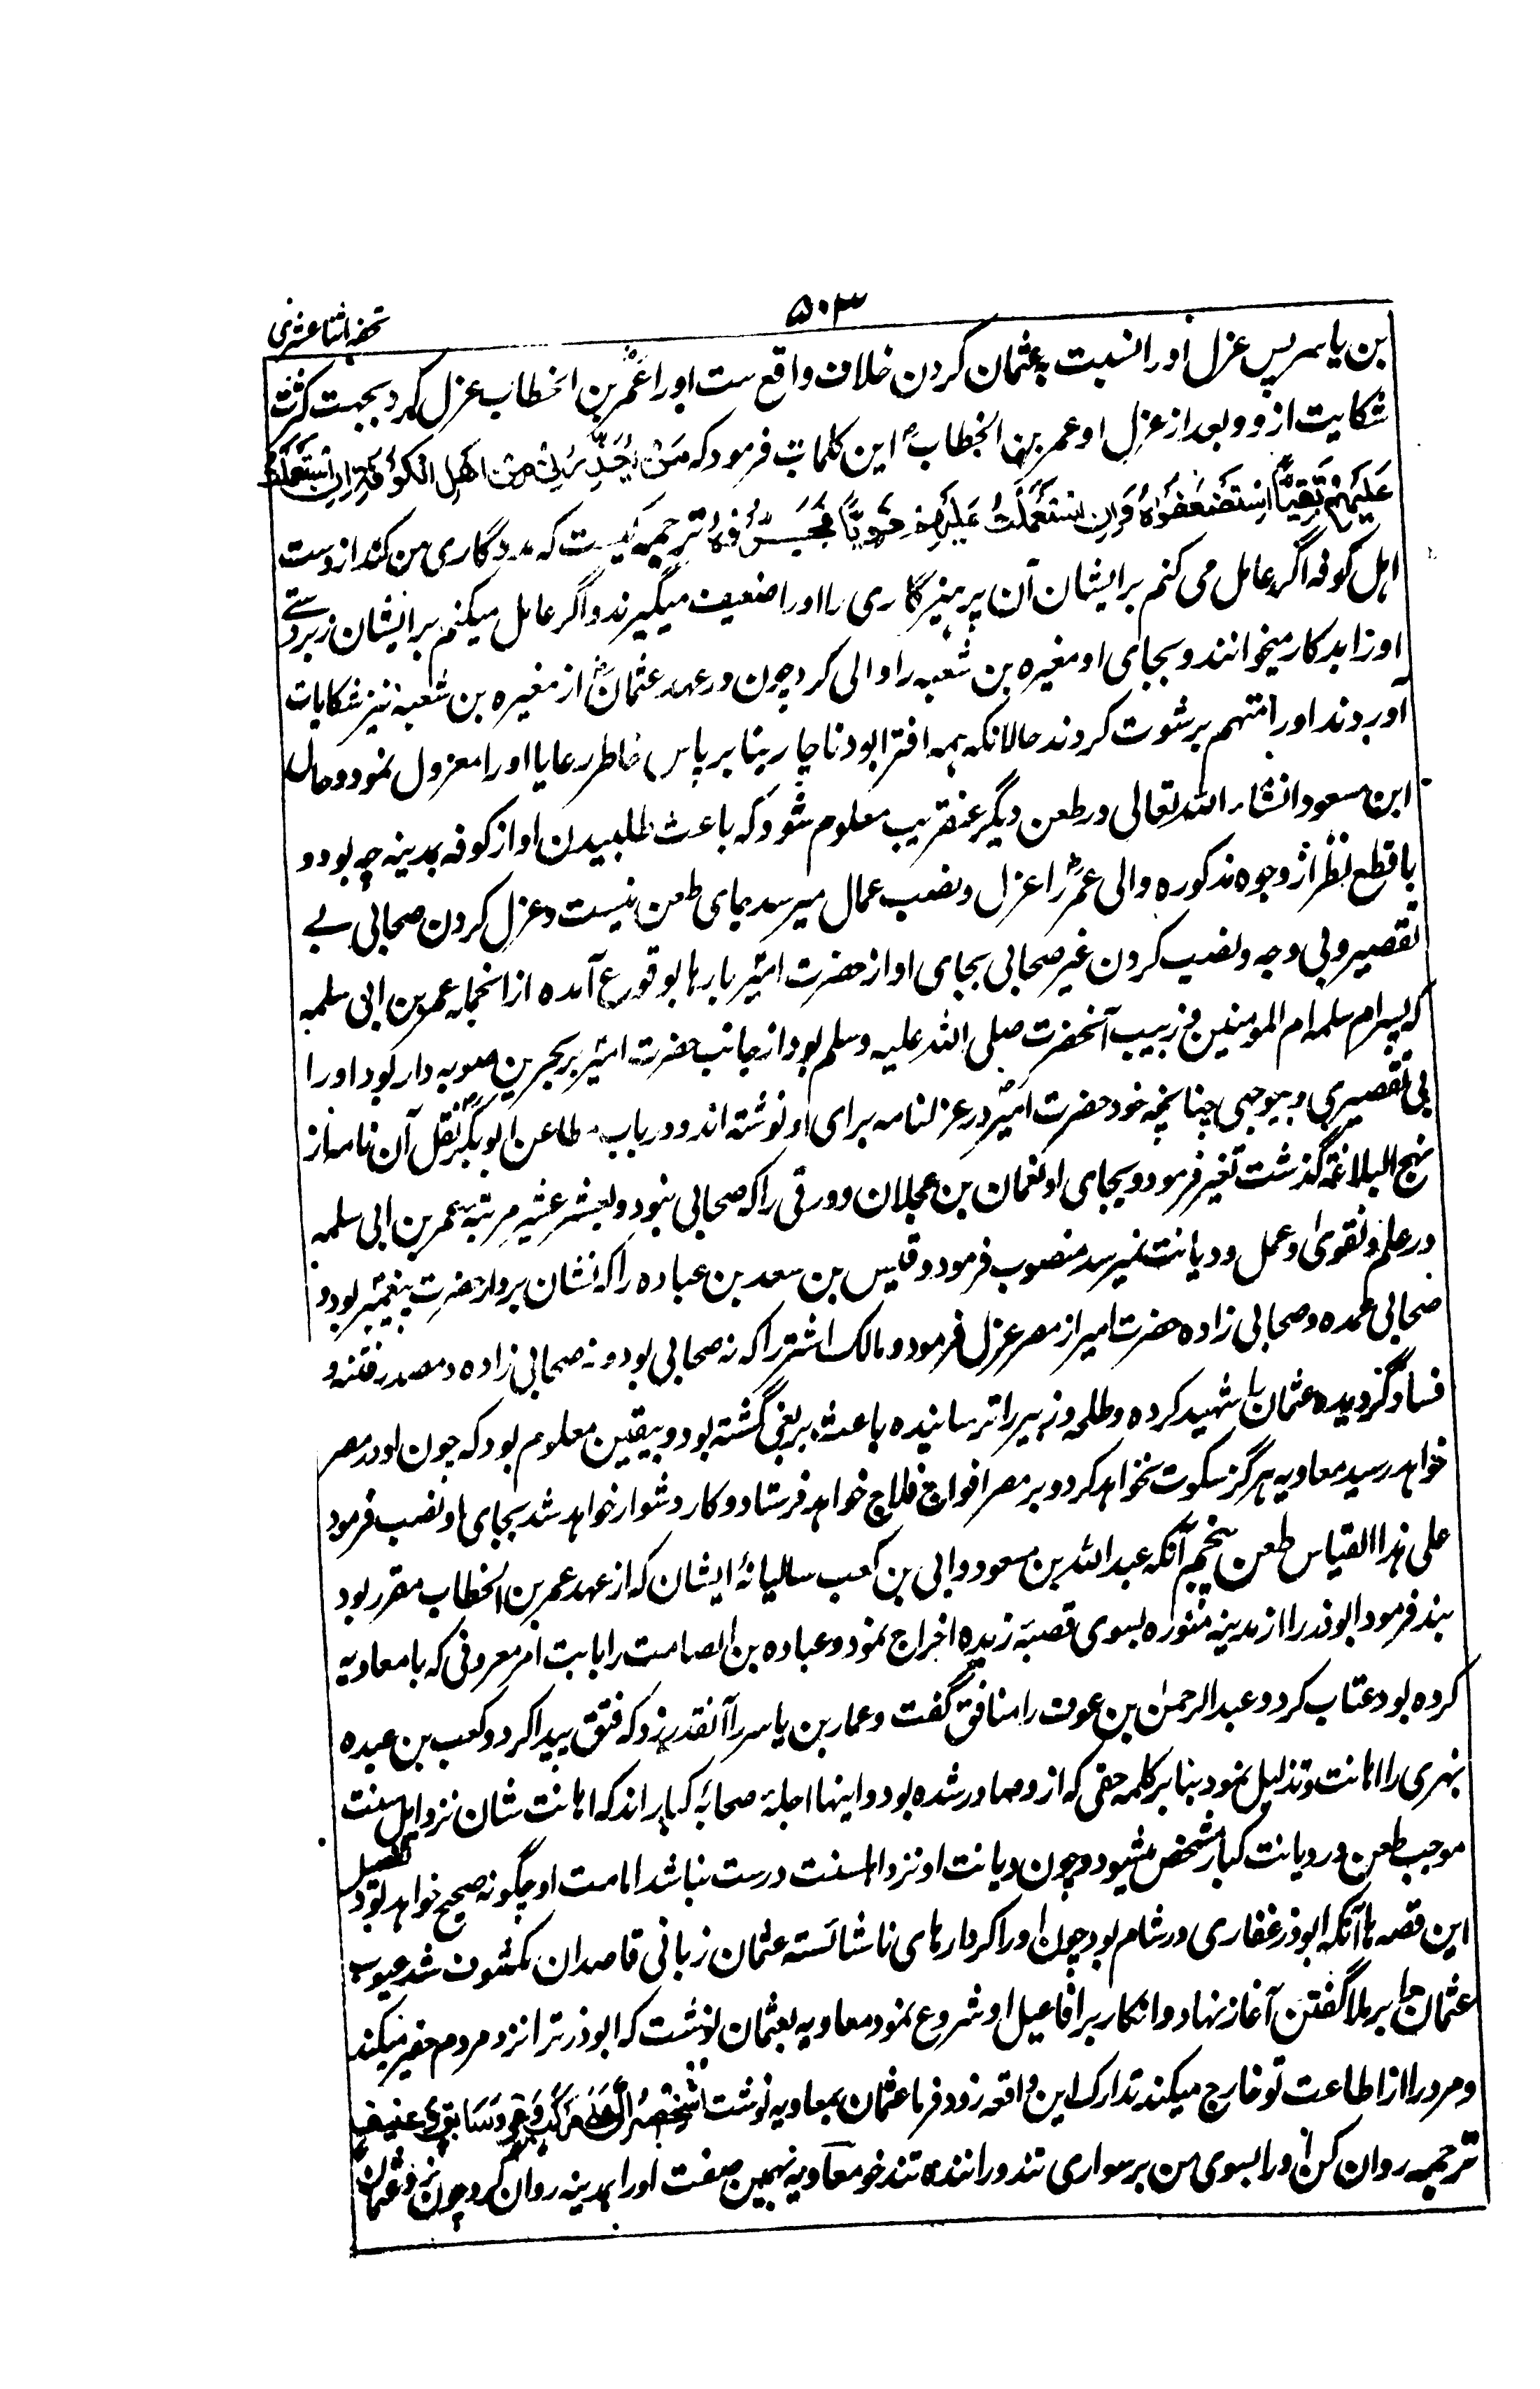 تحفه اثنا عشری
۵۰۳
بن یاسر پس عزل او را نسبت به عثمان کردن خلاف واقع ست او را عمر بن الخطاب عزل کرد بجهت کثرت
شکایت ازو و بعد از عزل او عمر بن الخطاب این کلمات فرمود که مَن من اهل الکوفة ان استعملت
علیهم تقیًّا استضعفوه وان استعملت علیهم قویًّا ترجمه کیست که مددگاری من کند از دست
اهل کوفه اگر عامل می کنم بر ایشان آن پرهیزگاری را او را ضعیف میگیرند و اگر عامل میکنم بر ایشان زبردستے
او را بدکار میخوانند و بجای او مغیره بن شعبه را والی کرد چون در عهد عثمان از مغیره بن شعبه نیز شکایات
آوردند او را متهم برشوت کردند حالانکه همه افترا بود ناچار بنا بر پاس خاطر رعایا او را معزول نمود و حال
ابن مسعود انشاء الله تعالی در طعن دیگر عنقریب معلوم شود که باعث طلبیدن او از کوفه بمدینه چه بود و
با قطع نظر از وجوه مذکوره والی عمر را عزل و نصب عمال میرسد جای طعن نیست و عزل کردن صحابی بے
تقصیر و بی وجه و نصب کردن غیر صحابی بجای او از حضرت امیر بارها بوقوع آمده از انجمله عمر بن ابی سلمه
که پسر ام سلمه ام المومنین و ربیب آنحضرت صلی الله علیه وسلم بود از جانب حضرت امیر بر بحرین صوبه دار بود او را
بی تقصیری و بیوجهی چنانچه خود حضرت امیر در عزلنامه برای او نوشته اند و در باب مطاعن ابوبکر نقل آن نامه از
نهج البلاغة گذشت تغیر فرمود و بجای او نعمان بن عجلان دورقی را که صحابی نبود و بعشر عشیر مرتبه عمر بن ابی سلمه
در علم و تقوی و عمل و دیانت نمیرسد منصوب فرمود و قیس بن سعد بن عباده را که نشان بردار حضرت پیغمبر بود و
صحابی عمده و صحابی زاده حضرت امیر از مصر عزل فرمود و مالک اشتر را که نه صحابی بود و نه صحابی زاده و مصدر فتنه و
فساد گردیده عثمان را شهید کرده و طلحه و زبیر را ترسانیده باعث بر بغی گشته بود و بیقین معلوم بود که چون او در مصر
خواهد رسید معاویه هرگز سکوت نخواهد کرد و بر مصر افواج خواهد فرستاد و کار دشوار خواهد شد بجای او نصب فرمود
علی هذا القیاس طعن پنجم آنکه عبد الله بن مسعود و ابی بن کعب سالیانهٔ ایشان که از عهد عمر بن الخطاب مقرر بود
بند فرمود ابوذر را از مدینه منوره بسوی قصبه ربذه اخراج نمود و عباده بن الصامت را بابت امر معروفی که با معاویه
کرده بود عتاب کرد و عبد الرحمن بن عوف را منافق گفت و عمار بن یاسر را آنقدر زد که فتق پیدا کرد و کعب بن عبده
بهزی را اهانت و تذلیل نمود بنا بر کلمه حقی که ازو صادر شده بود و اینها اجله صحابه کبار اند که اهانت شان نزد اهل سنت
موجب طعن در دیانت کبار مشخص میشود و چون دیانت او نزد اهلسنت درست نباشد امامت او چگونه صحیح خواهد بود تفصیل
این قصه ها آنکه ابوذر غفاری در شام بود چون او را کردارهای ناشائسته عثمان زبانی قاصدان مکشوف شد عیوب
عثمان را برملا گفتن آغاز نهاد و انکار بر افاعیل او شروع نمود معاویه بعثمان نوشت که ابوذر ترا نزد مردم حقیر میکند
و مردم را از اطاعت تو خارج میکند تدارک این واقعه زود فرما عثمان بمعاویه نوشت اشخصه الی علی مرکب وعر وسائق عنیف
ترجمه روان کن او را بسوی من بر سواری تند و راننده تندخو معاویه بهمین صفت او را بمدینه روان کرد چون نزد عثمان